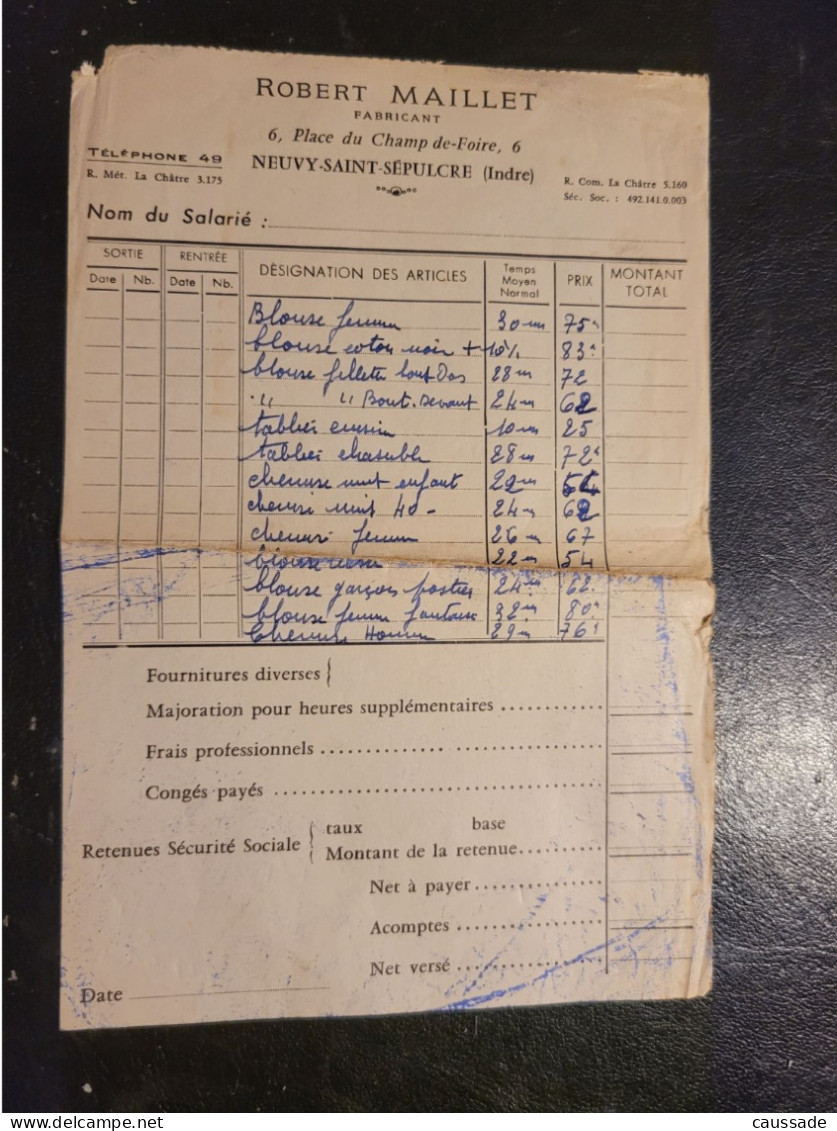 ROBERT MAILLET
FABRICANT
6, Place du Champ de-Foire, 6
TÉLÉPHONE 49
NEUVY-SAINT-SÉPULCRE (Indre)
R. Mét. La Châtre 3.175
R. Com. La Châtre 5.160
Séc. Soc. : 492.141.0.003
Nom du Salarié :
SORTIE RENTRÉE DÉSIGNATION DES ARTICLES Temps Moyen Normal PRIX MONTANT TOTAL
Date Nb. Date Nb.
Blouse femme 30 m 75
blouse coton noir + 10% 83
blouse fillette bout Dos 28 m 72
" " Bout. Devant 24 m 62
tablier cuisine 10 m 25
tablier chasuble 28 m 72
chemise nuit enfant 22 m
chemise nuit 40 - 24 m 62
chemise femme 26 m 67
blouse 22 m 54
blouse garçon 24 m 62
blouse femme fantaisie 32 m 80
Chemise Homme 29 m 76
Fournitures diverses {
Majoration pour heures supplémentaires
Frais professionnels
Congés payés
Retenues Sécurité Sociale { taux base
Montant de la retenue
Net à payer
Acomptes
Net versé
Date
caussade